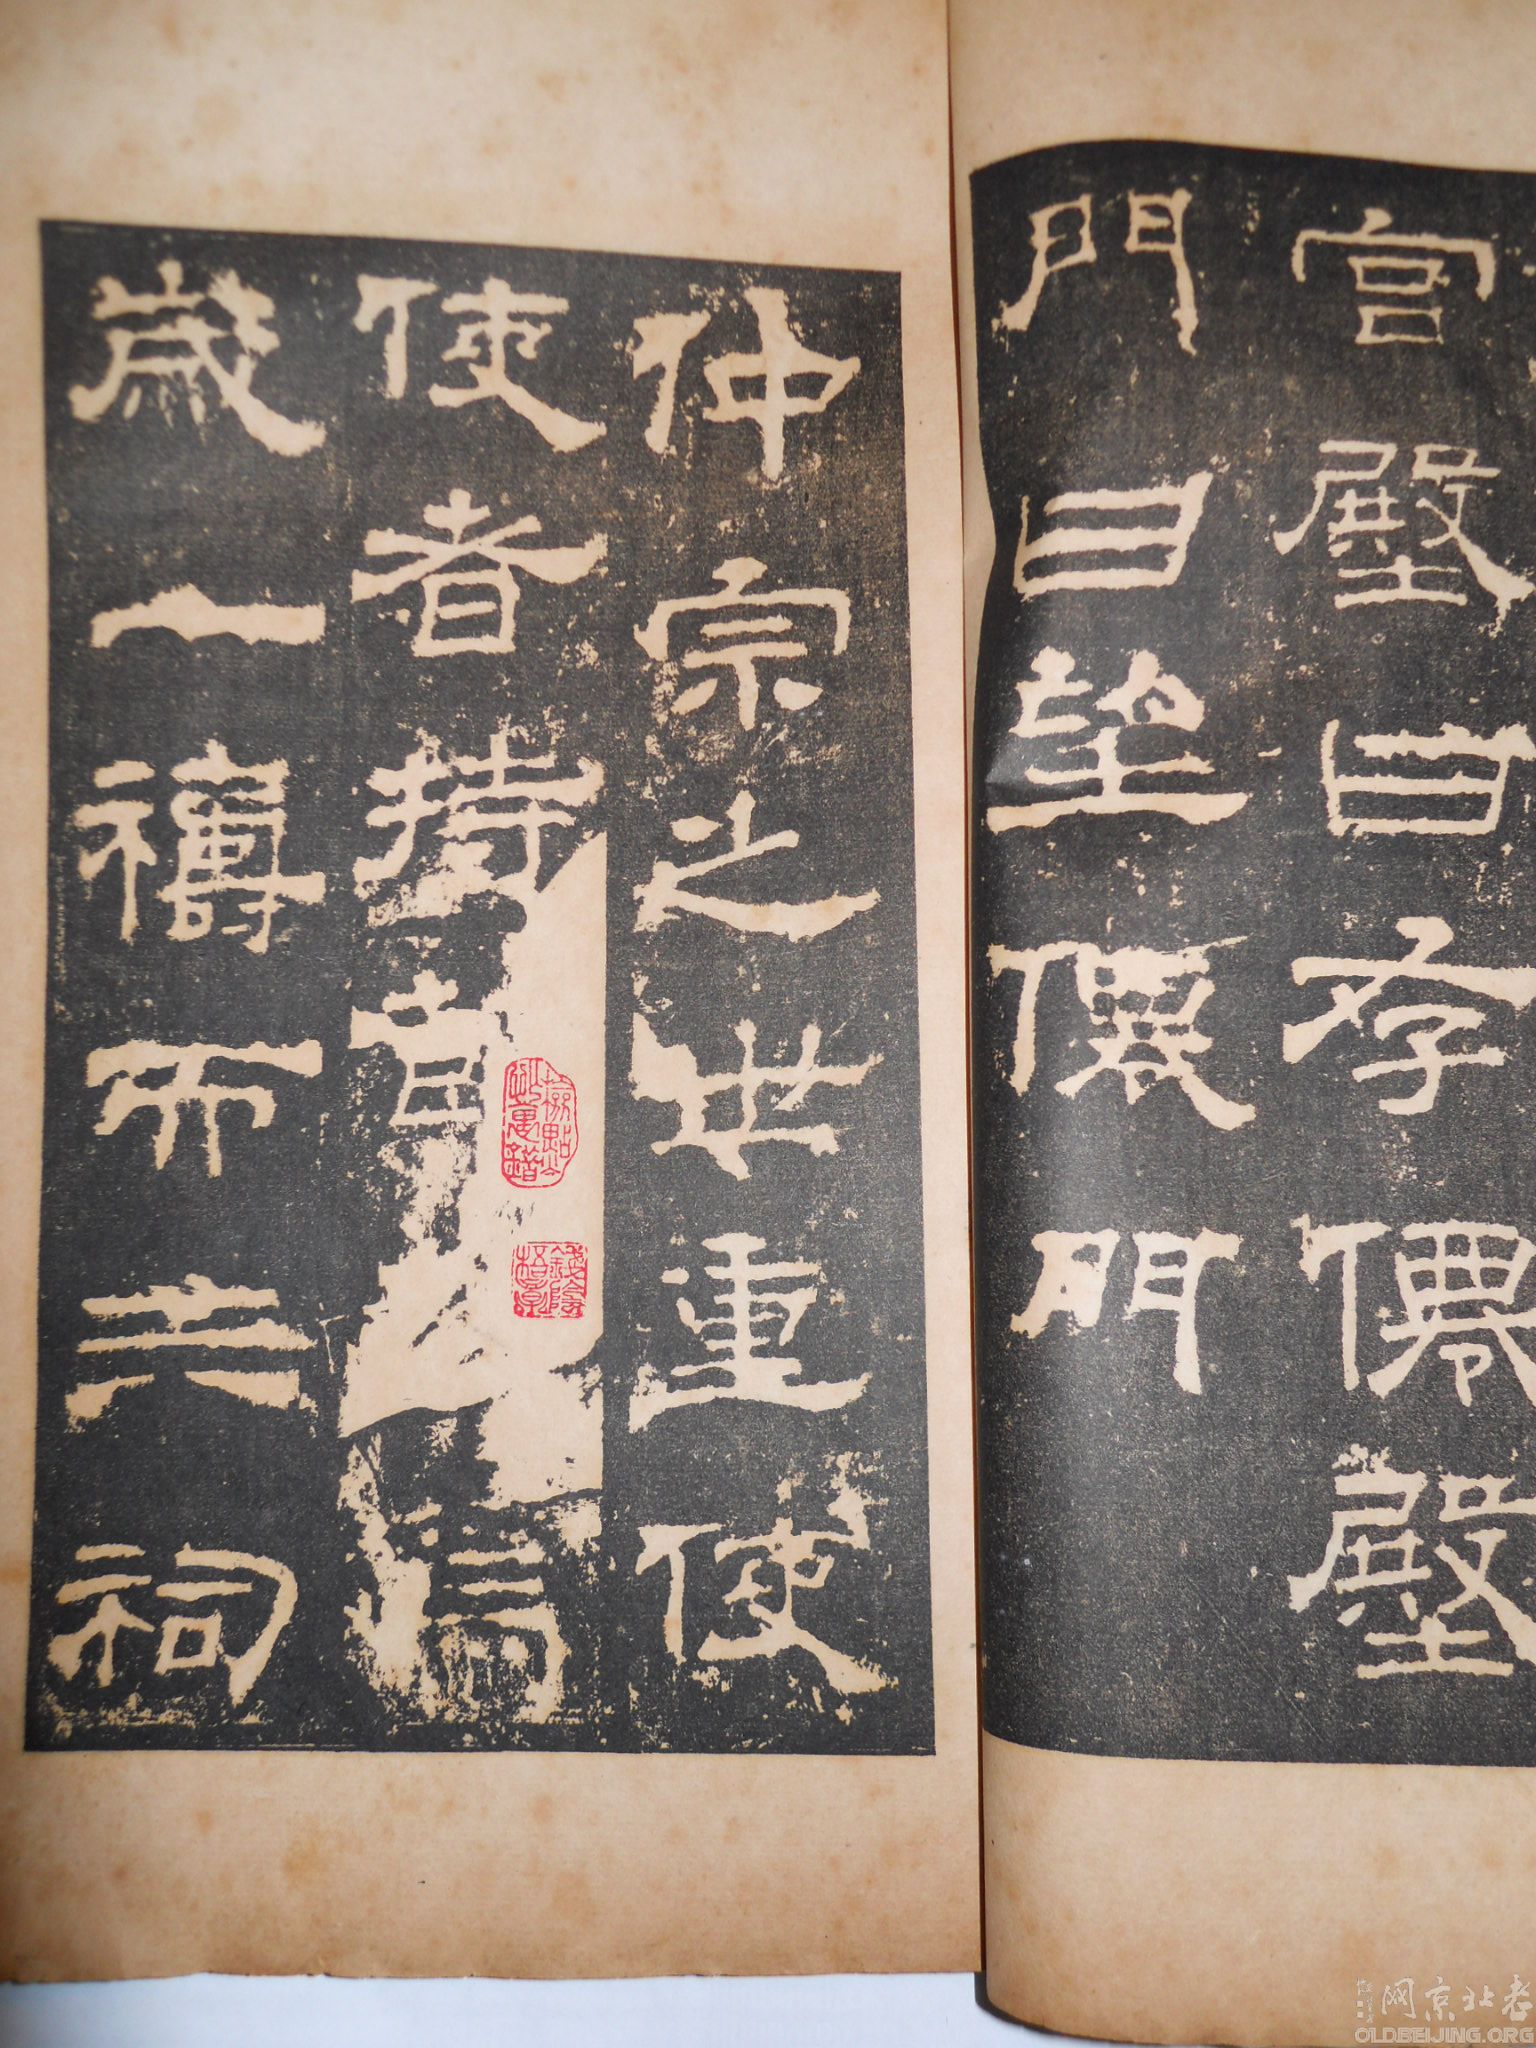 宮殿曰存僊殿
門曰望僊門
仲宗之世重使
使者持節焉
歲一禱而三祠
老北京网
OLDBEIJING.ORG